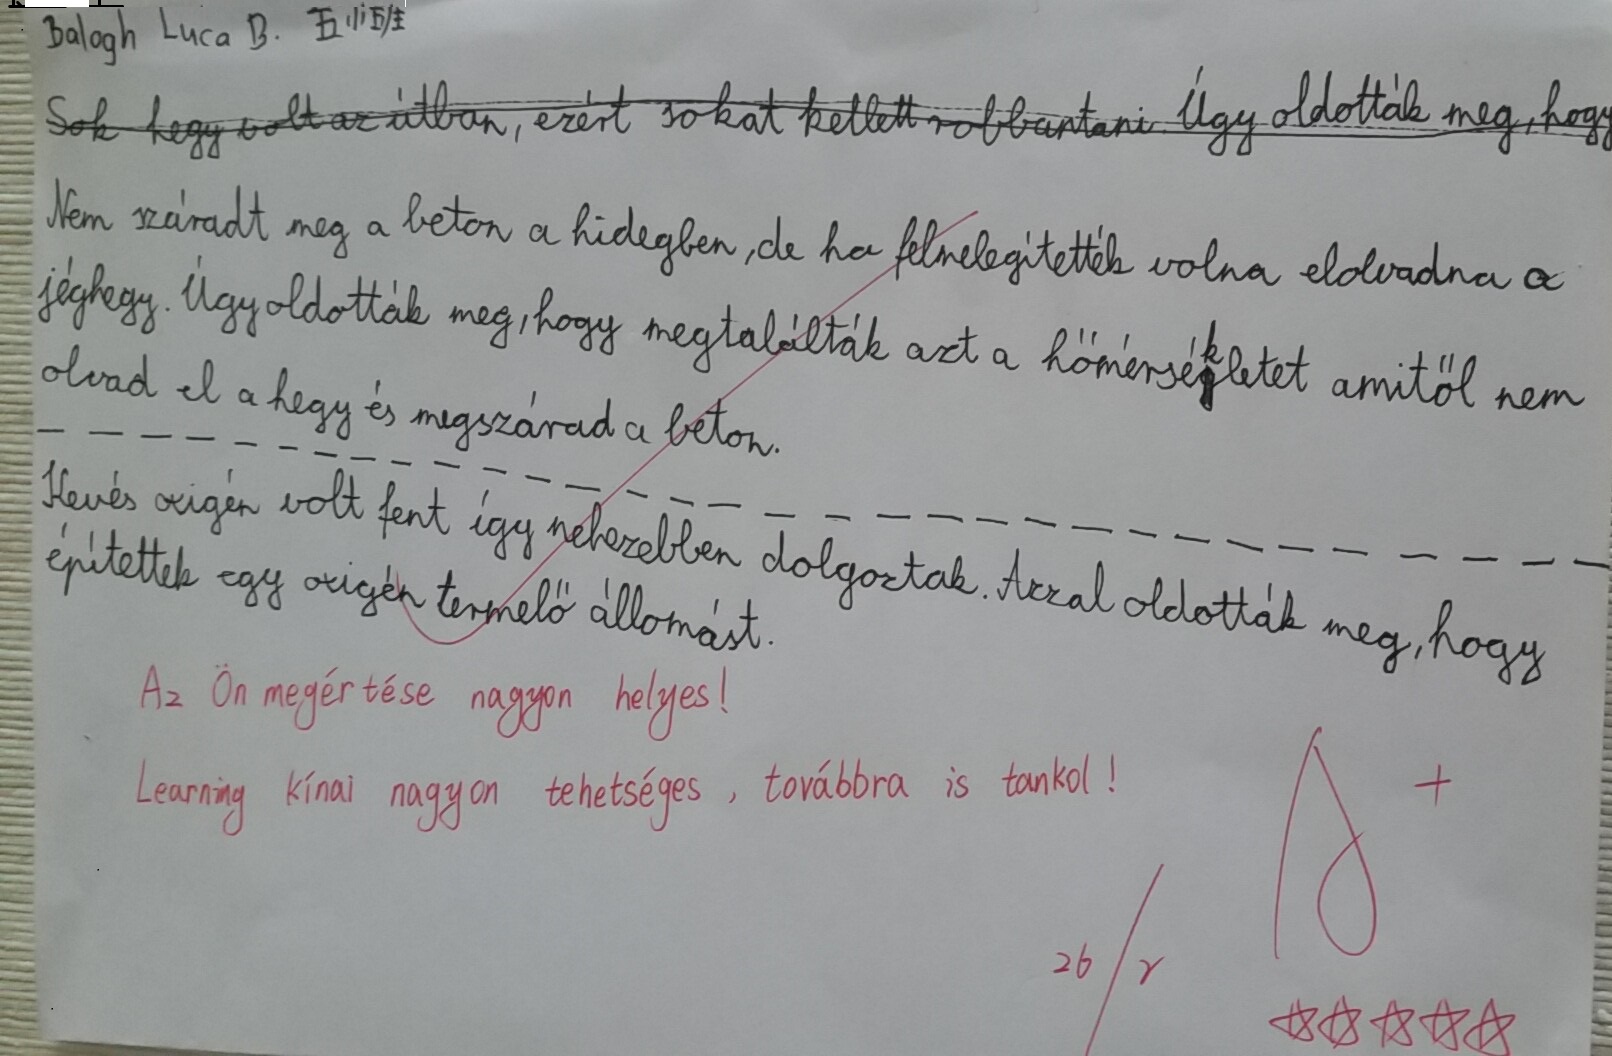 Balogh Luca B. 五小班
Sok hegy volt az útban, ezért sokat kellett robbantani. Úgy oldották meg, hogy
Nem száradt meg a beton a hidegben, de ha felmelegítették volna elolvadna a
jéghegy. Úgy oldották meg, hogy megtalálták azt a hőmérsékletet amitől nem
olvad el a hegy és megszárad a beton.
Kevés oxigén volt fent így nehezebben dolgoztak. Azzal oldották meg, hogy
építettek egy oxigén termelő állomást.
Az Ön megértése nagyon helyes!
Learning kínai nagyon tehetséges, továbbra is tankol!
A+
26/